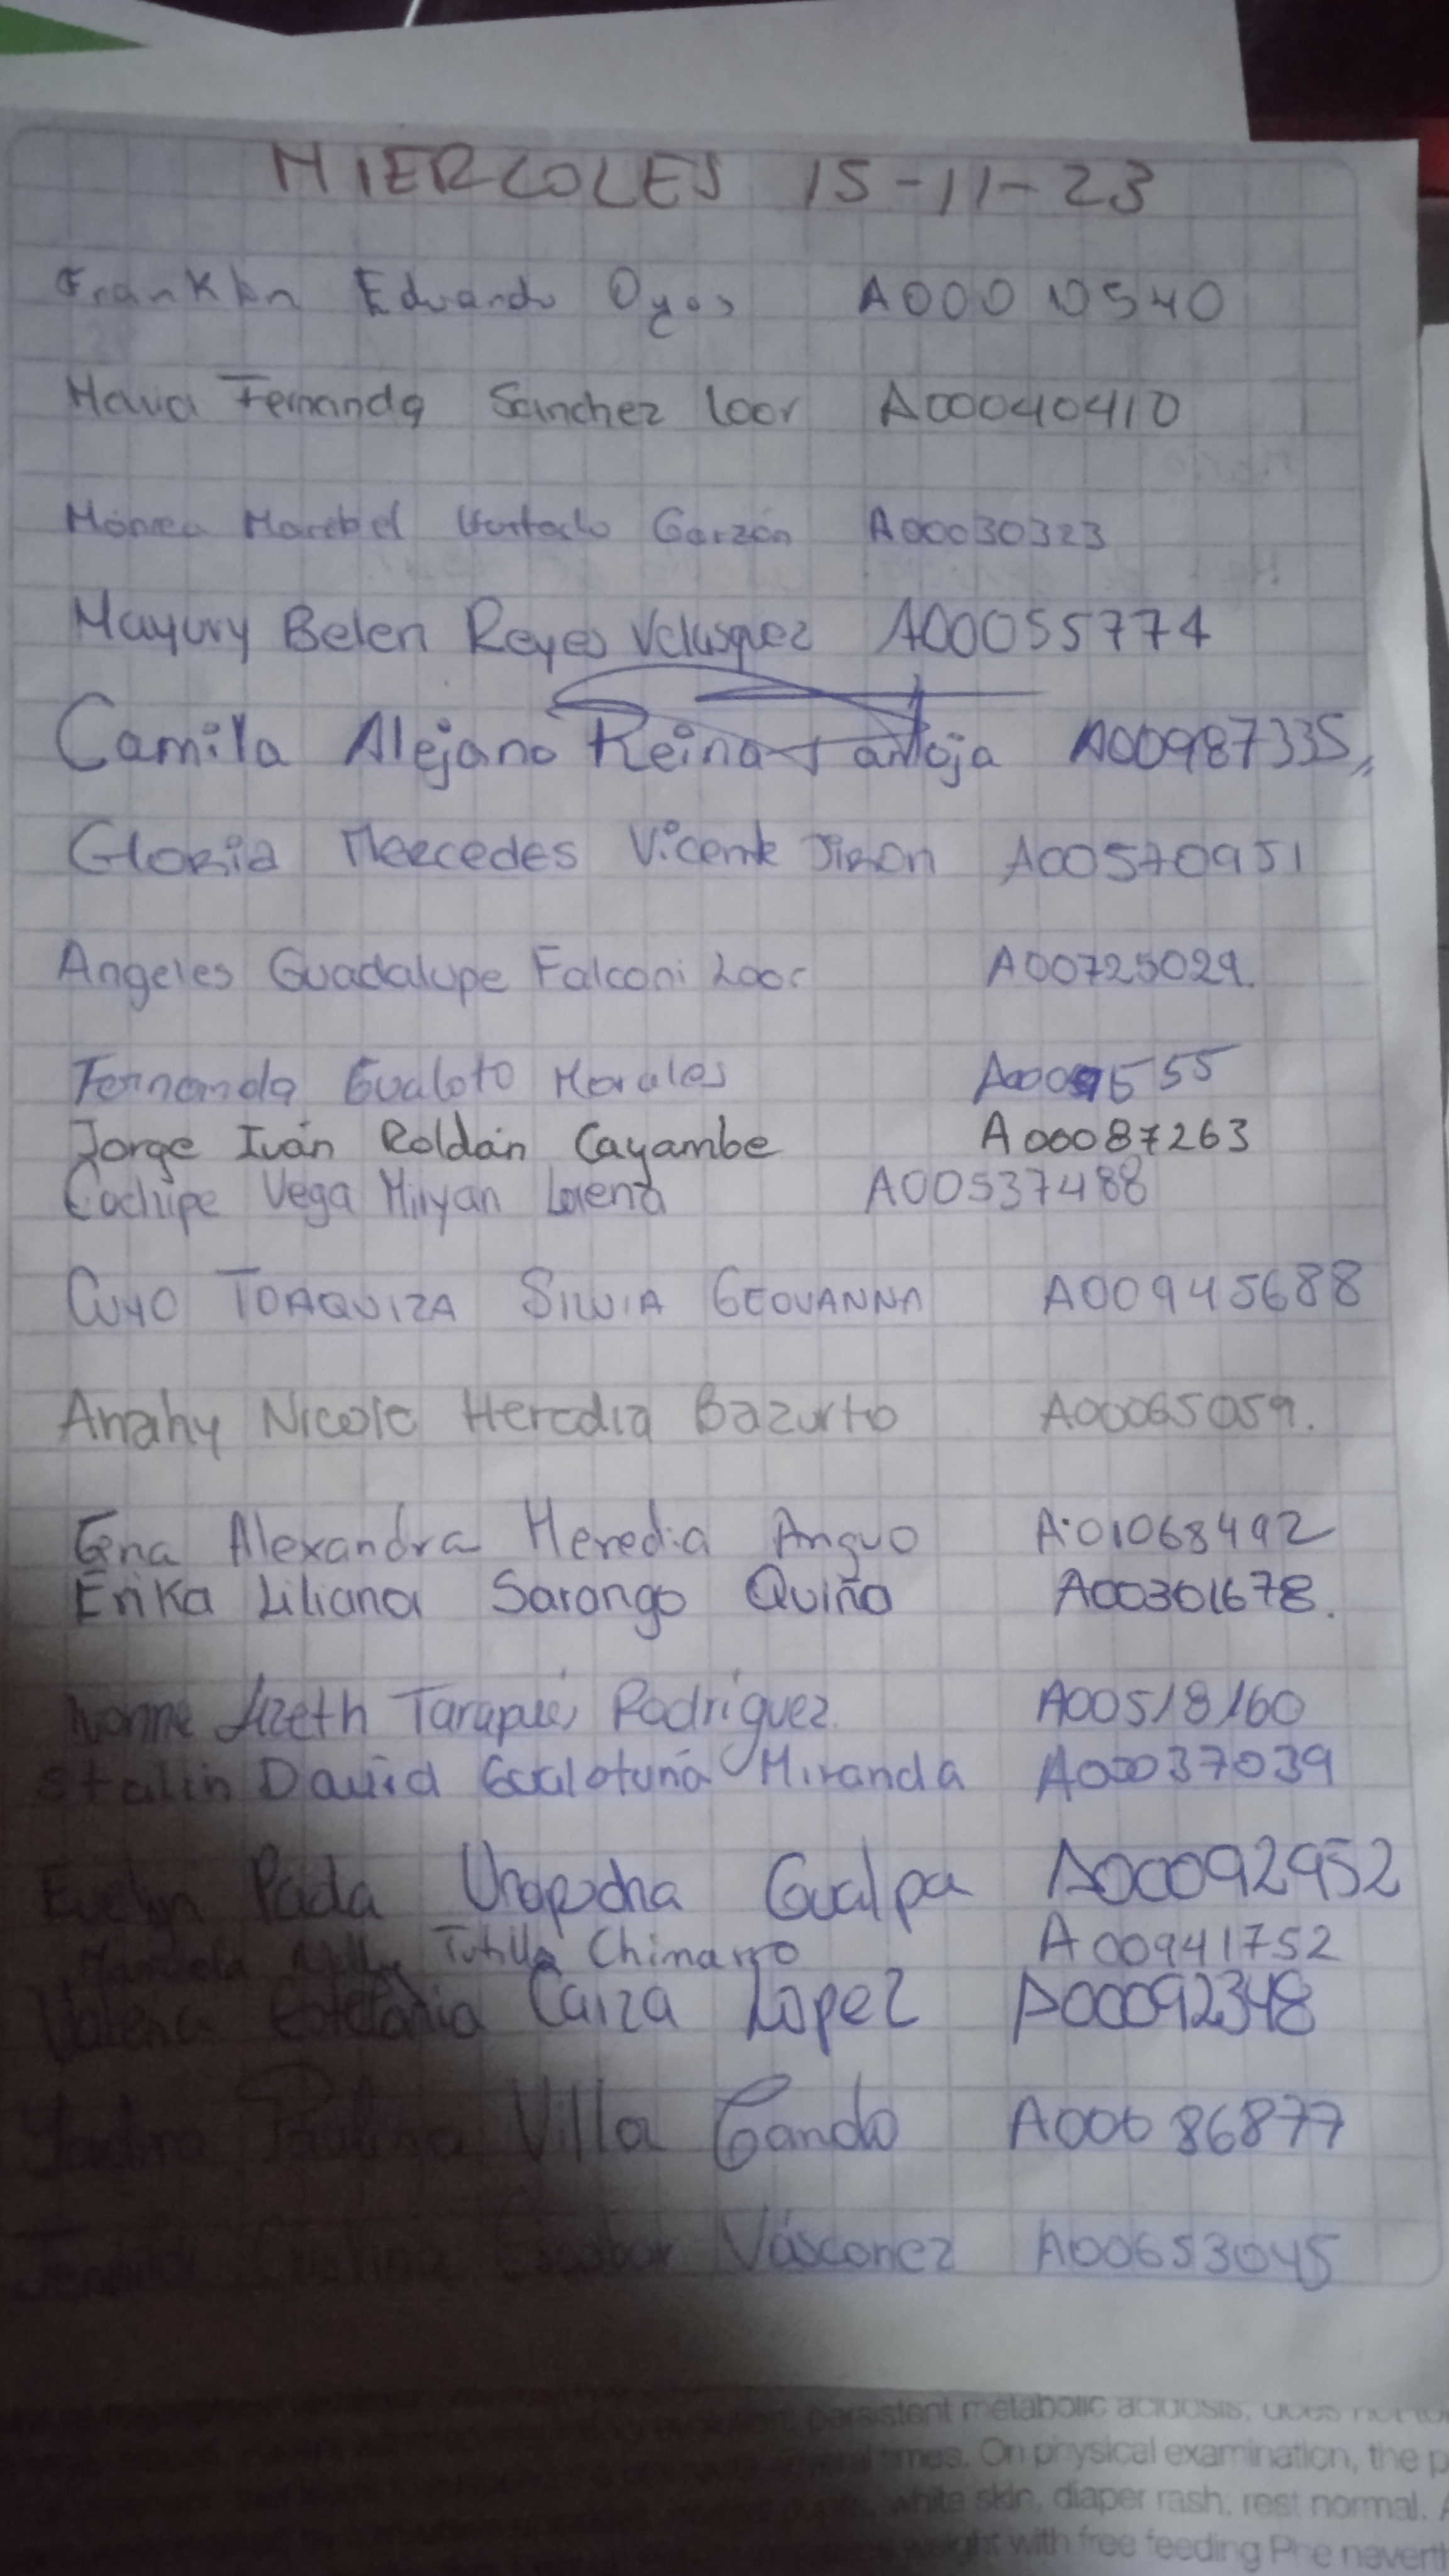 MIERCOLES 15-11-23
Franklin Eduardo Oyos A00010540
Maria Fernanda Sanchez Loor A00040410
Mónica Maribel Hurtado Garzón A00030323
Mayury Belen Reyes Velasquez A00055774
Camila Alejano Reina Pantoja A00987335
Gloria Mercedes Vicente Jiron A00570951
Angeles Guadalupe Falconi Loor A00725029.
Fernanda Gualoto Morales
Jorge Iván Roldán Cayambe A00087263
Cachipe Vega Miryan Lorena A00537488
CUYO TOAQUIZA SILVIA GEOVANNA A00945688
Anahy Nicole Heredia Bazurto A00065059.
Gina Alexandra Heredia Anguo A01068492
Erika Liliana Sarango Quiño A00301678.
Ivonne Lizeth Tarapués Rodríguez A00518160
Stalin David Gualotuña Miranda A00037039
Evelyn Gualpa A00092952
Tutilla Chimarro A00941752
Valeria Estefania Caiza Lopez A00092348
Villa Gando A00086877
Cristina Escobar Vásconez A00653045
persistent metabolic acidosis, does not
times. On physical examination, the
white skin, diaper rash, rest normal.
weight with free feeding